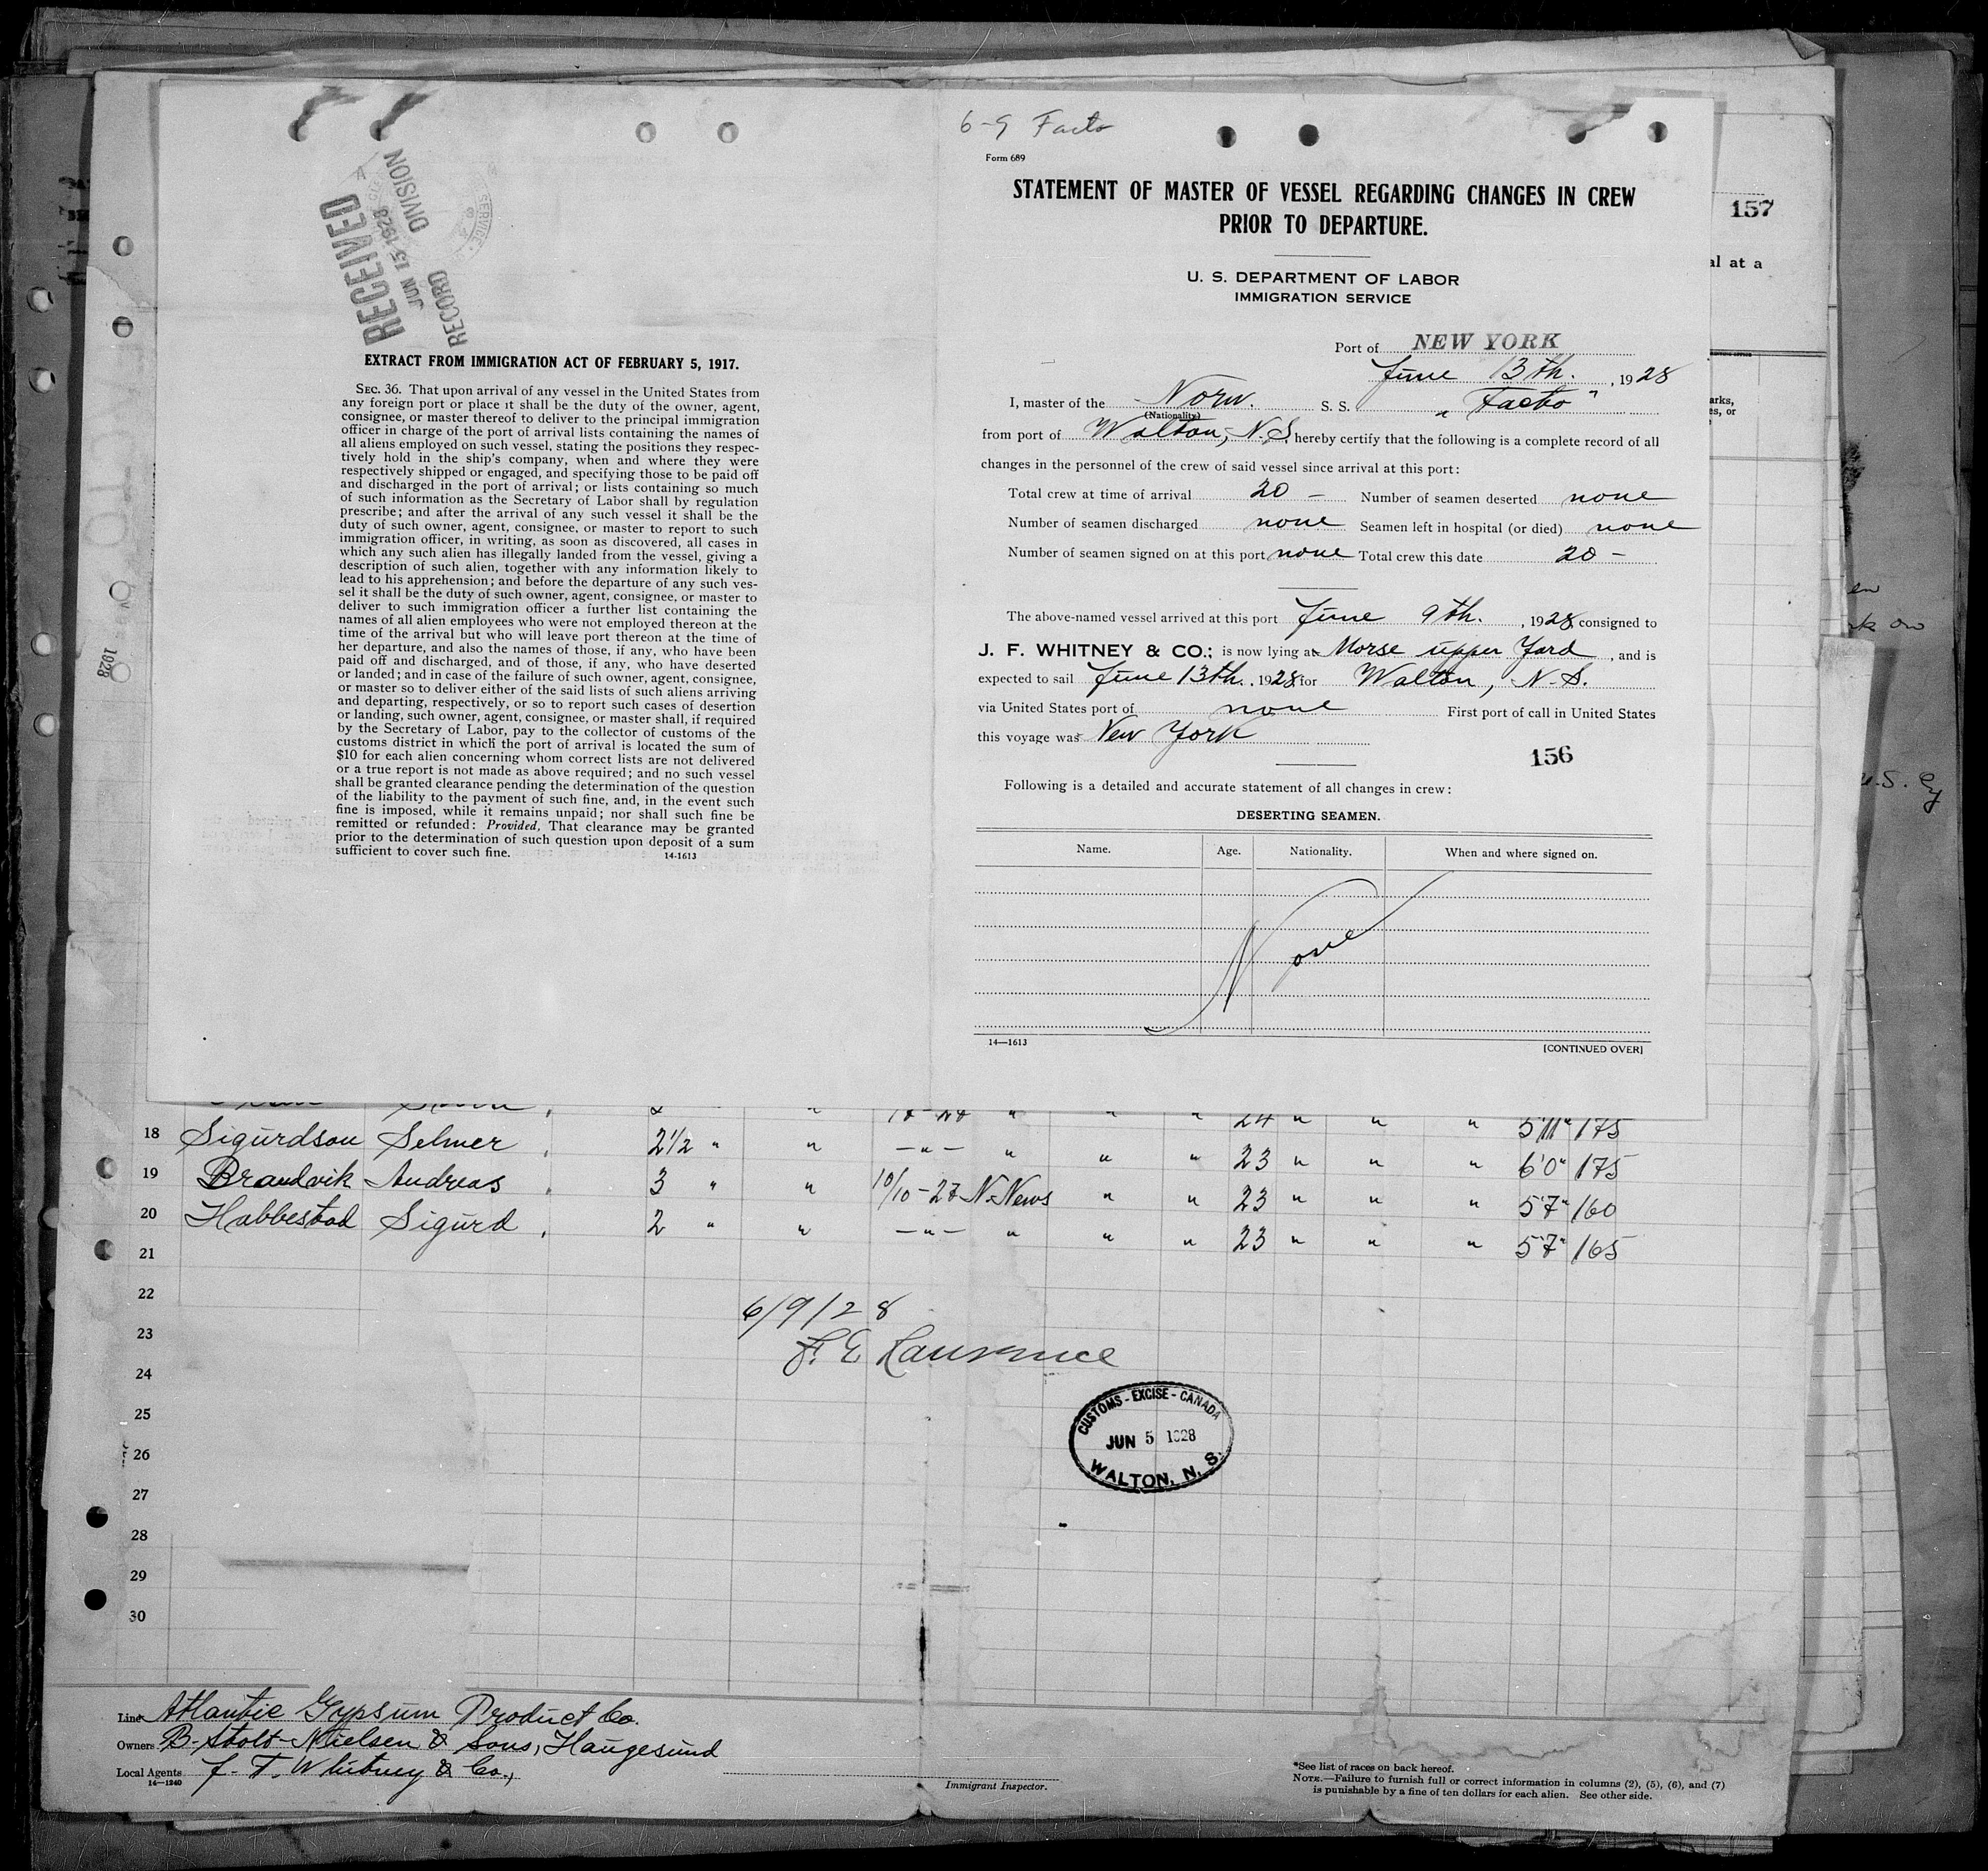 RECEIVED
JUN 15 1928
RECORD DIVISION
SERVICE
EXTRACT FROM IMMIGRATION ACT OF FEBRUARY 5, 1917.
SEC. 36. That upon arrival of any vessel in the United States from
any foreign port or place it shall be the duty of the owner, agent,
consignee, or master thereof to deliver to the principal immigration
officer in charge of the port of arrival lists containing the names of
all aliens employed on such vessel, stating the positions they respec-
tively hold in the ship's company, when and where they were
respectively shipped or engaged, and specifying those to be paid off
and discharged in the port of arrival; or lists containing so much
of such information as the Secretary of Labor shall by regulation
prescribe; and after the arrival of any such vessel it shall be the
duty of such owner, agent, consignee, or master to report to such
immigration officer, in writing, as soon as discovered, all cases in
which any such alien has illegally landed from the vessel, giving a
description of such alien, together with any information likely to
lead to his apprehension; and before the departure of any such ves-
sel it shall be the duty of such owner, agent, consignee, or master to
deliver to such immigration officer a further list containing the
names of all alien employees who were not employed thereon at the
time of the arrival but who will leave port thereon at the time of
her departure, and also the names of those, if any, who have been
paid off and discharged, and of those, if any, who have deserted
or landed; and in case of the failure of such owner, agent, consignee,
or master so to deliver either of the said lists of such aliens arriving
and departing, respectively, or so to report such cases of desertion
or landing, such owner, agent, consignee, or master shall, if required
by the Secretary of Labor, pay to the collector of customs of the
customs district in which the port of arrival is located the sum of
$10 for each alien concerning whom correct lists are not delivered
or a true report is not made as above required; and no such vessel
shall be granted clearance pending the determination of the question
of the liability to the payment of such fine, and, in the event such
fine is imposed, while it remains unpaid; nor shall such fine be
remitted or refunded: Provided, That clearance may be granted
prior to the determination of such question upon deposit of a sum
sufficient to cover such fine.
14-1613
6-9 Facto
Form 689
STATEMENT OF MASTER OF VESSEL REGARDING CHANGES IN CREW
PRIOR TO DEPARTURE.
U. S. DEPARTMENT OF LABOR
IMMIGRATION SERVICE
Port of NEW YORK
June 13th. , 1928
I, master of the Norw. S. S. "Facto"
(Nationality)
from port of Walton, N.S. hereby certify that the following is a complete record of all
changes in the personnel of the crew of said vessel since arrival at this port:
Total crew at time of arrival 20 - Number of seamen deserted none
Number of seamen discharged none Seamen left in hospital (or died) none
Number of seamen signed on at this port none Total crew this date 20 -
The above-named vessel arrived at this port June 9th. , 1928, consigned to
J. F. WHITNEY & CO.; is now lying at Morse upper Yard , and is
expected to sail June 13th. , 1928, for Walton, N.S.
via United States port of none First port of call in United States
this voyage was New York
156
Following is a detailed and accurate statement of all changes in crew:
DESERTING SEAMEN.
Name. Age. Nationality. When and where signed on.
None
14—1613
[CONTINUED OVER]
157
al at a
arks,
es, or
1928
24 " " " 5'11" 175
18 Sigurdson Selmer , 2½ " " -"- " " " 23 " " " 6'0" 175
19 Brandvik Andreas , 3 " " 10/10-27 N.News " " 23 " " " 5'7" 160
20 Habbestad Sigurd , 2 " " -"- " " " 23 " " " 5'7" 165
21
22
6/9/28
23
F. E Lawrence
24
25
CUSTOMS - EXCISE - CANADA
JUN 5 1928
WALTON, N. S.
26
27
28
29
30
Line Atlantic Gypsum Product Co.
Owners B. Stolt-Nielsen & Sons, Haugesund
Local Agents J. F. Whitney & Co.,
14—1240
Immigrant Inspector.
*See list of races on back hereof.
NOTE.—Failure to furnish full or correct information in columns (2), (5), (6), and (7)
is punishable by a fine of ten dollars for each alien. See other side.